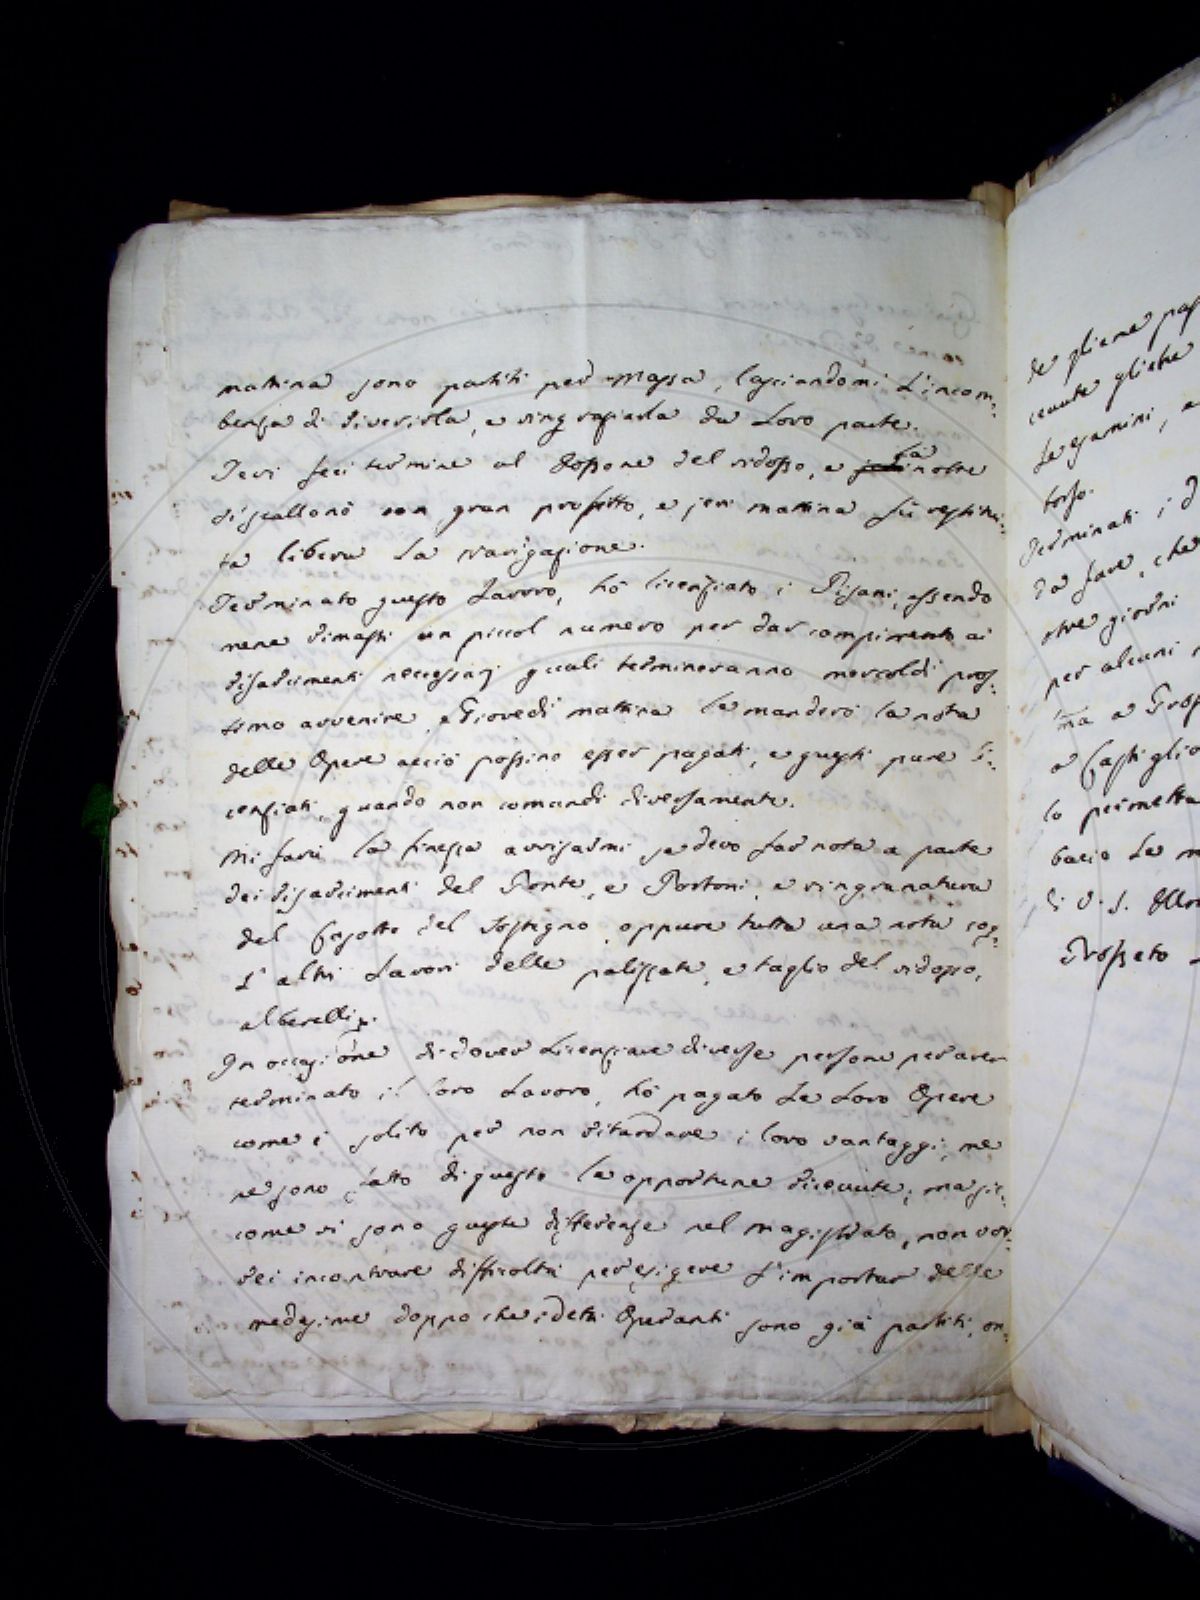 mattina sono partiti per Massa, lasciandomi L'incom=
benza di riverirla, e ringraziarla da Loro parte.
Ieri feci termine al Dossone del ridosso, e la notte
riscallonò con gran profitto, e jeri mattina fù restitui=
ta libera La Navigazione.
Terminato questo Lavoro, hò licenziato i Pisani, essendo
mene rimasti un piccol numero per dar compimento ai
risarcimenti necessarj quali termineranno mercoldi pros=
simo avvenire, e Giovedi mattina le manderò la nota
delle Opere acciò possino esser pagati, e questi pure li=
cenziati, quando non comandi diversamente.
Mi farà la finezza avvisarmi se devo far nota a parte
dei risarcimenti del Ponte, e Portoni, e ringranatura
del Casotto del Sostegno, oppure tutta una nota cog=
l'altri Lavori delle palizzate, e taglio del ridosso,
alberelli
In occasione di dover Licenziare diverse persone per aver
terminato il loro Lavoro, hò pagato Le Loro Opere
come è solito per non ritardare i loro vantaggi, me
ne sono fatto di questo le opportune ricevute; ma sic=
come vi sono queste differenze nel Magistrato, non vor=
rei incontrare difficoltà per esigere L'importar delle
medesime doppo che i detti Operanti sono già partiti, on=
de gliene
cevute gliele
Le esamini, e
torso.
Terminati i
da fare, che
otre giorni
per alcuni
ma a Gros
a Castiglio
lo permetta
bacio Le m
di V. S. Illm
Grosseto